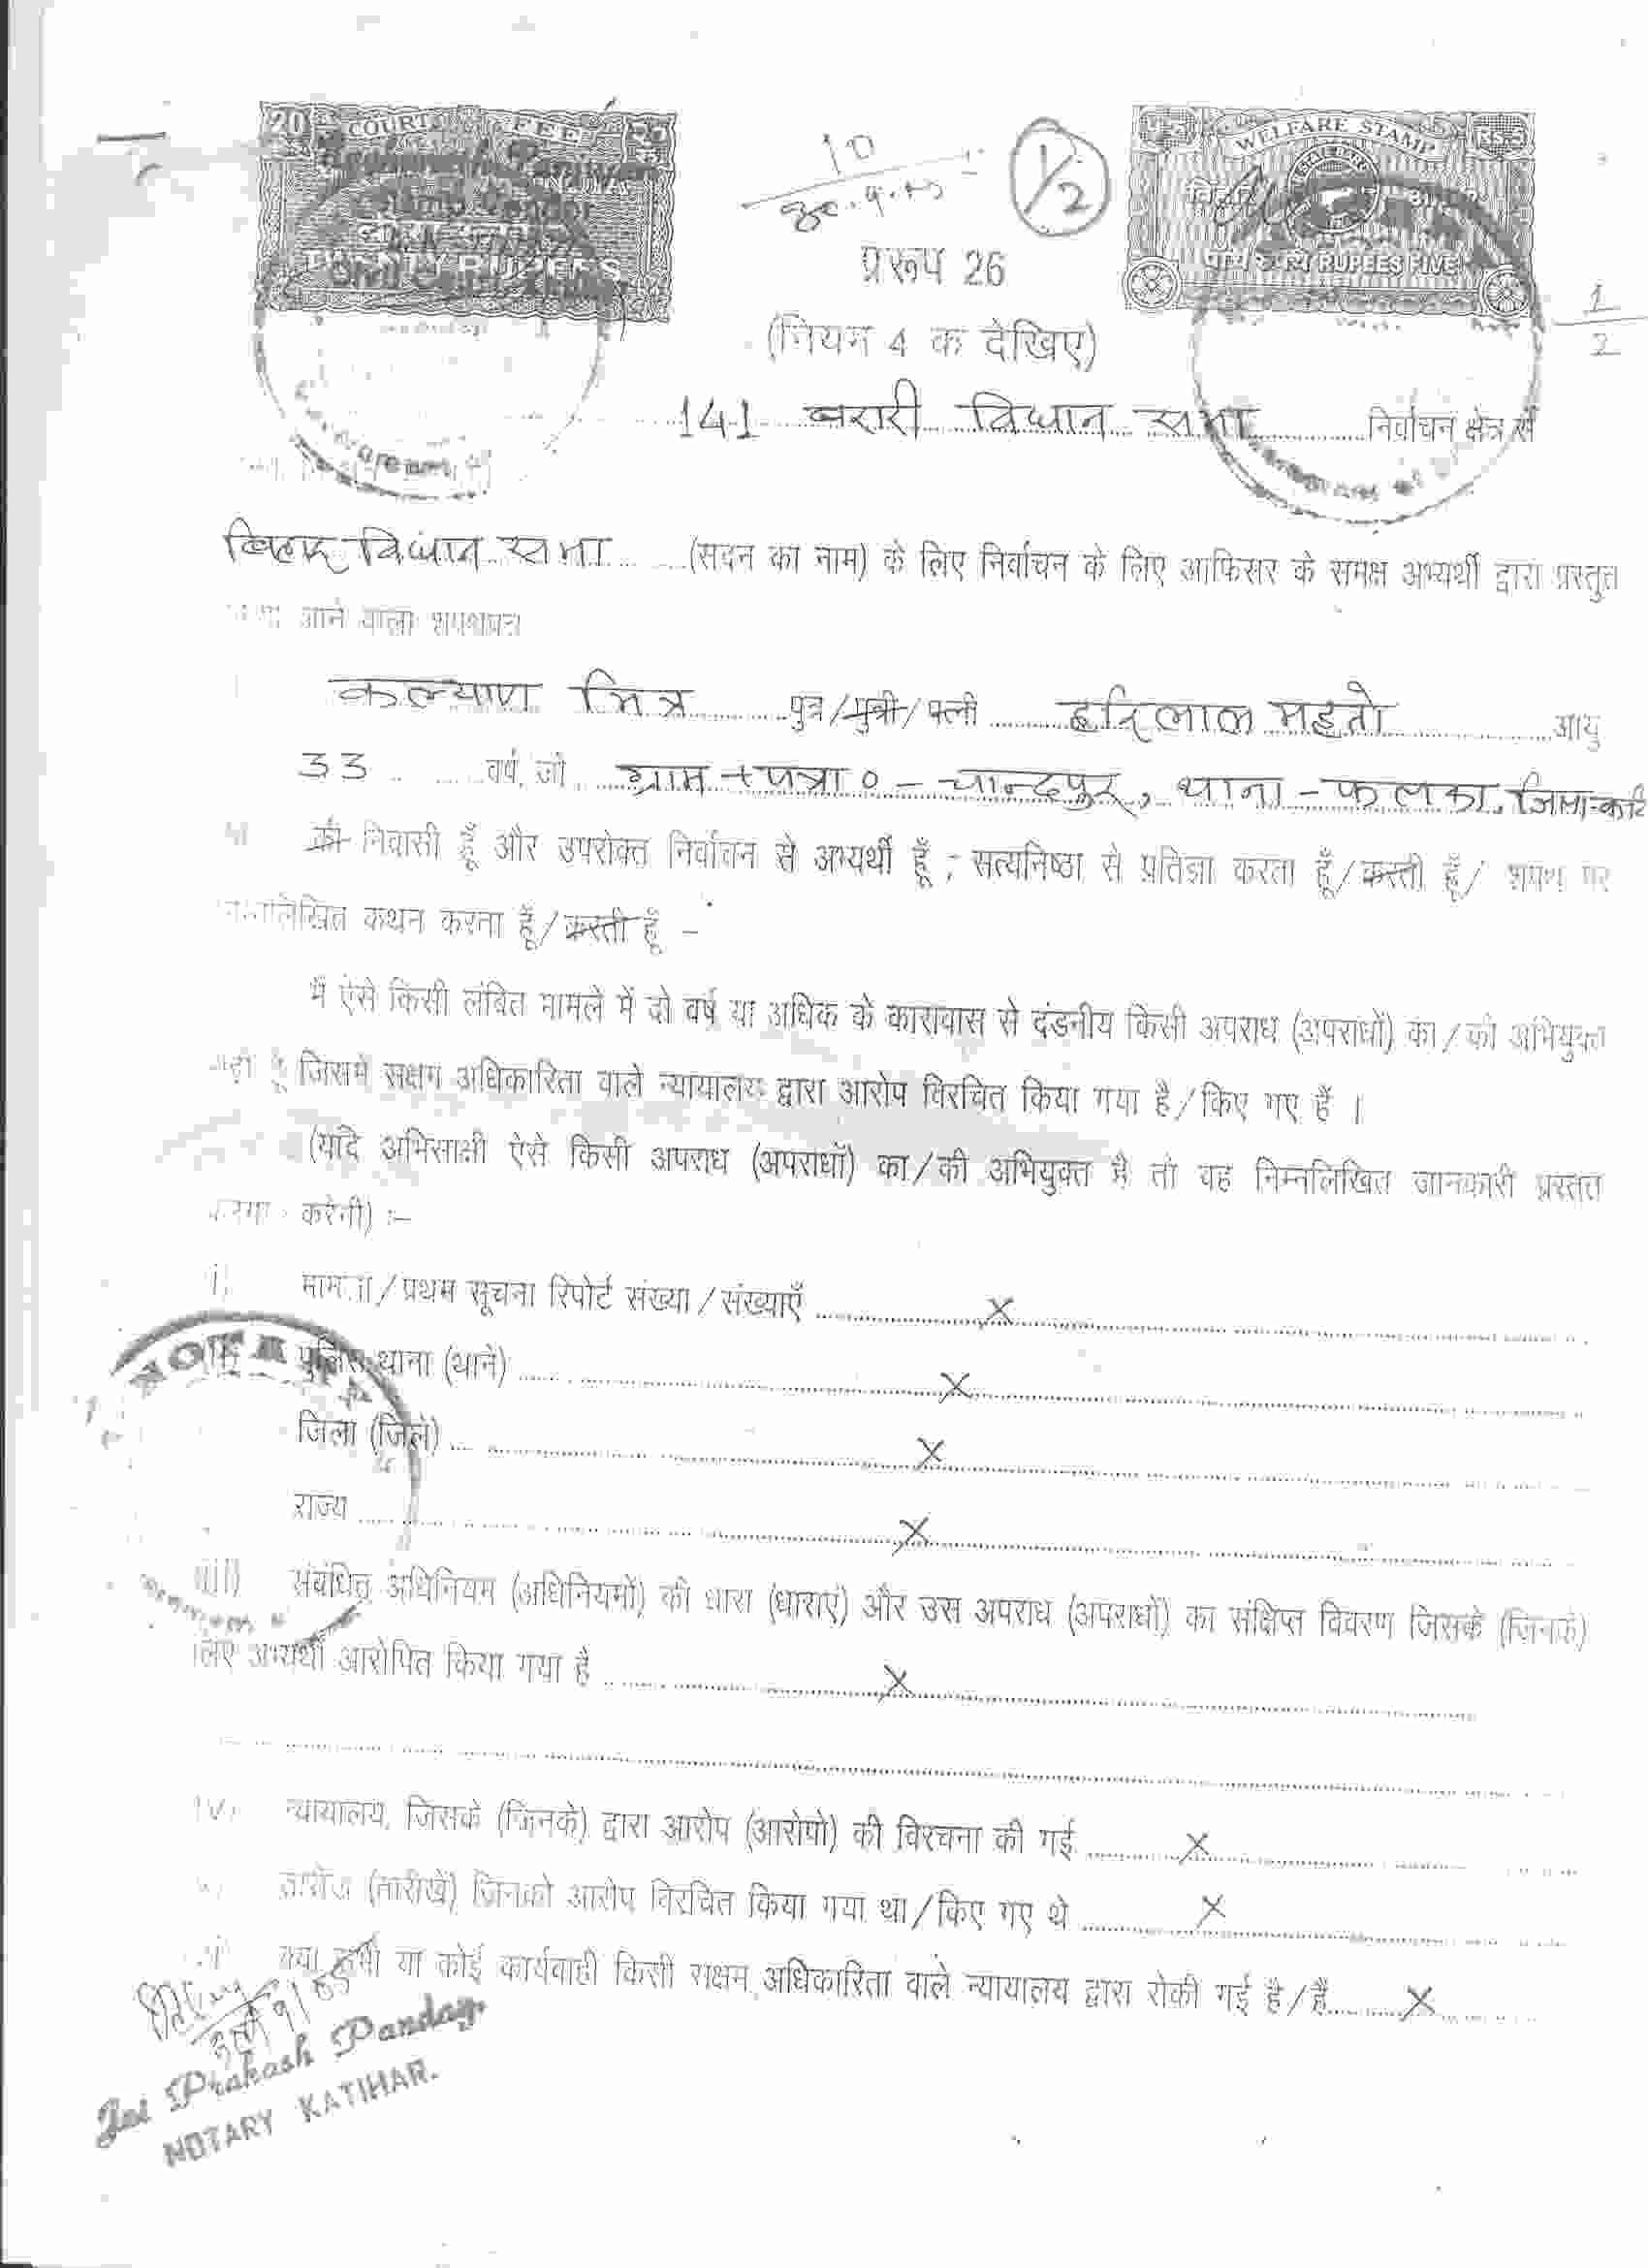 20 COURT FEE
TWENTY RUPEES
WELFARE STAMP
RUPEES FIVE
10
1/2
प्ररूप 26
1/2
(नियम 4 क देखिए)
141 बरारी विधान सभा निर्वाचन क्षेत्र से
बिहार विधान सभा (सदन का नाम) के लिए निर्वाचन के लिए आफिसर के समक्ष अभ्यर्थी द्वारा प्रस्तुत
जाने वाला शपथपत्र
कल्याण मित्र पुत्र/पुत्री/पत्नी हरिलाल महतो आयु
33 वर्ष, जो ग्राम + पत्रा० - चान्दपुर, थाना - फलका, जिला-कटि
की निवासी हूँ और उपरोक्त निर्वाचन से अभ्यर्थी हूँ, सत्यनिष्ठा से प्रतिज्ञा करता हूँ/करती हूँ/ शपथ पर
निम्नलिखित कथन करता हूँ/करती हूँ –
मैं ऐसे किसी लंबित मामले में दो वर्ष या अधिक के कारावास से दंडनीय किसी अपराध (अपराधों) का/की अभियुक्त
नहीं हूँ जिसमें सक्षम अधिकारिता वाले न्यायालय द्वारा आरोप विरचित किया गया है/किए गए हैं ।
(यदि अभिसाक्षी ऐसे किसी अपराध (अपराधों) का/की अभियुक्त है तो वह निम्नलिखित जानकारी प्रस्तुत
करेगी) :–
मामला/प्रथम सूचना रिपोर्ट संख्या/संख्याएँ X
पुलिस थाना (थाने) X
जिला (जिले) X
राज्य X
(iii) संबंधित अधिनियम (अधिनियमों) की धारा (धाराएं) और उस अपराध (अपराधों) का संक्षिप्त विवरण जिसके (जिनके)
लिए अभ्यर्थी आरोपित किया गया है X
न्यायालय, जिसके (जिनके) द्वारा आरोप (आरोपों) की विरचना की गई X
तारीख (तारीखें) जिनको आरोप विरचित किया गया था/किए गए थे X
क्या सभी या कोई कार्यवाही किसी सक्षम अधिकारिता वाले न्यायालय द्वारा रोकी गई है/हैं X
Jai Prakash Panday
NOTARY KATIHAR.